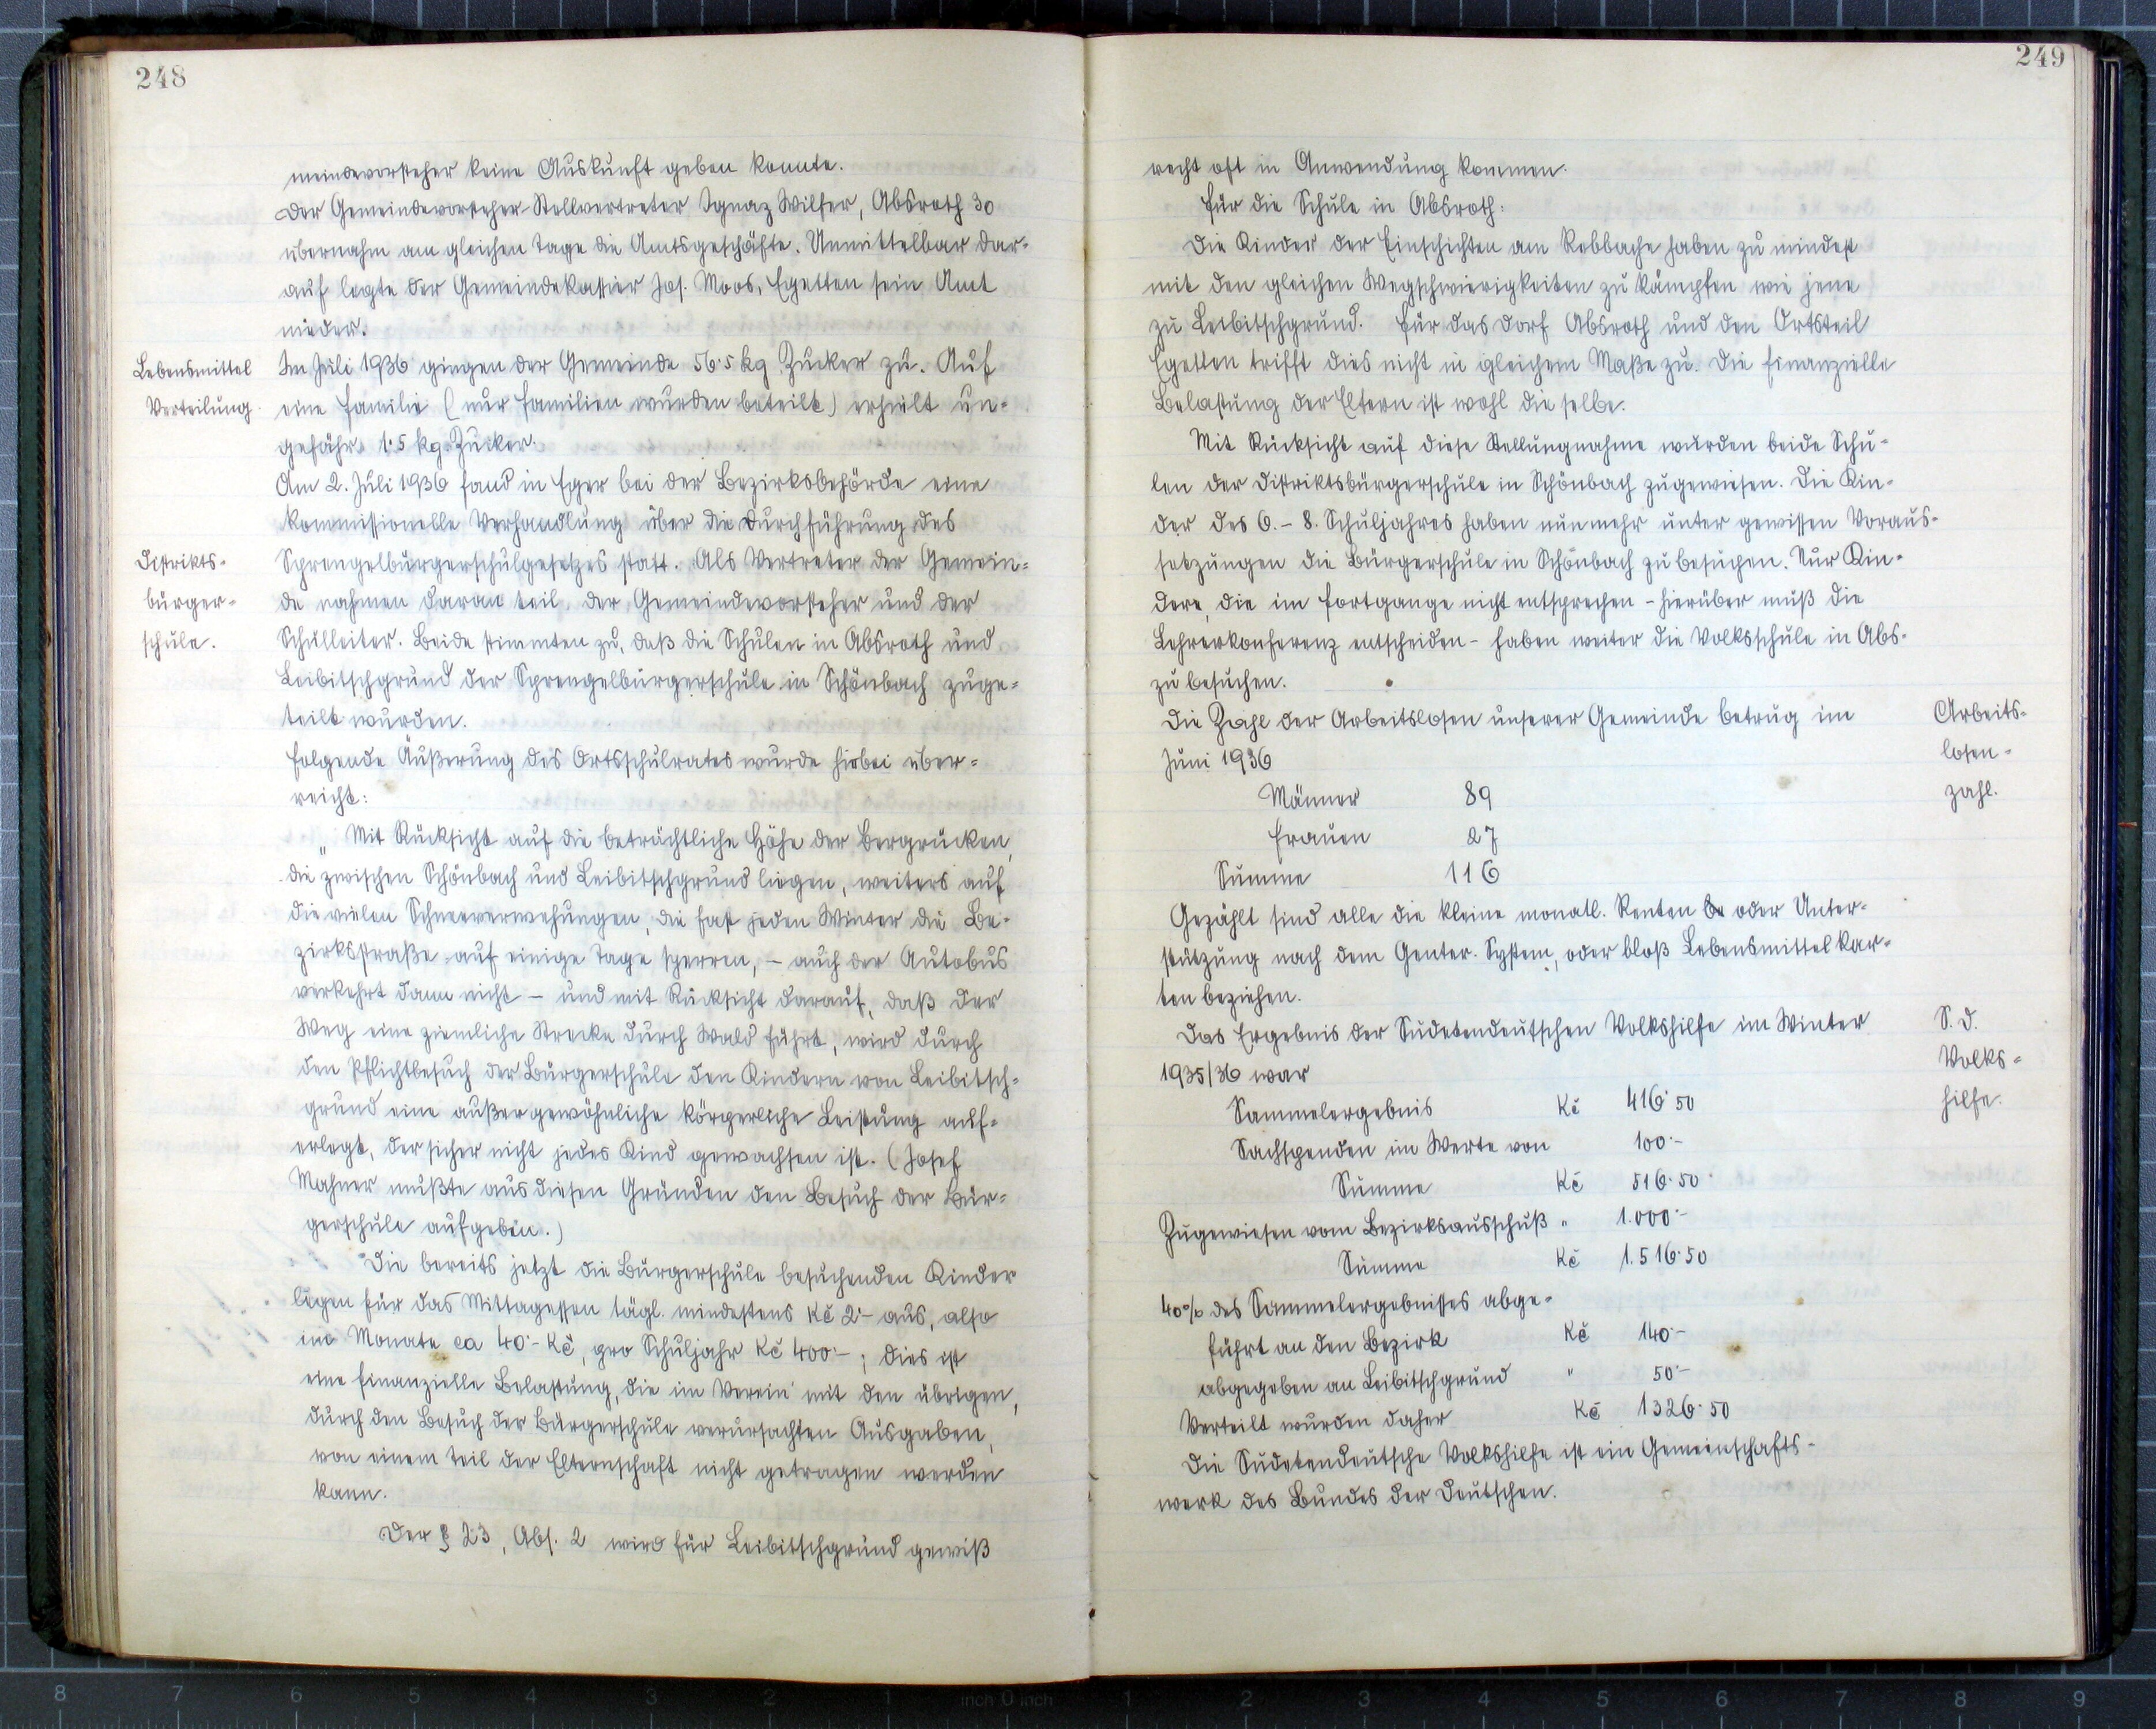 248
meindevorsteher keine Auskunft geben konnte.
Der Gemeindevorsteher-Stellvertreter Ignaz Wilfer, Absroth 30
übernahm am gleichen Tage die Amtsgeschäfte. Unmittelbar dar-
auf legte der Gemeindekassier Jos. Moos, Egetten sein Amt
nieder.
Lebensmittel
Verteilung.
Im Juli 1936 gingen der Gemeinde 56·5 kg Zucker zu. Auf
eine Familie (nur Familien wurden beteilt) erhielt un-
gefähr 1·5 kg Zucker.
Am 2. Juli 1936 fand in Eger bei der Bezirksbehörde eine
kommissionelle Verhandlung über die Durchführung des
Distrikts-
bürger-
schule.
Sprengelbürgerschulgesetzes statt. Als Vertreter der Gemein-
de nahmen daran teil, der Gemeindevorsteher und der
Schulleiter. Beide stimmten zu, daß die Schulen in Absroth und
Leibitschgrund der Sprengelbürgerschule in Schönbach zuge-
teilt wurden.
Folgende Äußerung des Ortsschulrates wurde hiebei über-
reicht:
„Mit Rücksicht auf die beträchtliche Höhe der Bergrücken,
die zwischen Schönbach und Leibitschgrund liegen, weiters auf
die vielen Schneeverwehungen, die fast jeden Winter die Be-
zirksstraße auf einige Tage sperren, – auch der Autobus
verkehrt dann nicht – und mit Rücksicht darauf, daß der
Weg eine ziemliche Strecke durch Wald führt, wird durch
den Pflichtbesuch der Bürgerschule den Kindern von Leibitsch-
grund eine außergewöhnliche körperliche Leistung auf-
erlegt, der sicher nicht jedes Kind gewachsen ist. (Josef
Mahner mußte aus diesen Gründen den Besuch der Bür-
gerschule aufgeben.)
Die bereits jetzt die Bürgerschule besuchenden Kinder
legen für das Mittagessen tägl. mindestens Kč 2·– aus, also
im Monate ca 40·– Kč, pro Schuljahr Kč 400·–; dies ist
eine finanzielle Belastung, die im Verein mit den übrigen,
durch den Besuch der Bürgerschule verursachten Ausgaben,
von einem Teil der Elternschaft nicht getragen werden
kann.
Der § 23, Abs. 2 wird für Leibitschgrund gewiß
249
recht oft in Anwendung kommen.
Für die Schule in Absroth:
Die Kinder der Einschichten am Rebbache haben zu mindest
mit den gleichen Wegschwierigkeiten zu kämpfen wie jene
zu Leibitschgrund. Für das Dorf Absroth und den Ortsteil
Egetten trifft dies nicht in gleichem Maße zu. Die finanzielle
Belastung der Eltern ist wohl die selbe.
Mit Rücksicht auf diese Stellungnahme wurden beide Schu-
len der Distriktsbürgerschule in Schönbach zugewiesen. Die Kin-
der des 6.–8. Schuljahres haben nun mehr unter gewissen Voraus-
setzungen die Bürgerschule in Schönbach zu besuchen. Nur Kin-
dere, die im Fortgange nicht entsprechen – hierüber muß die
Lehrerkonferenz entscheiden – haben weiter die Volksschule in Abs-
zu besuchen.
Die Zahl der Arbeitslosen unserer Gemeinde betrug im
Arbeits-
losen-
zahl.
Juni 1936
Männer 89
Frauen 27
Summe 116
Gezählt sind alle die kleine monatl. Renten oder Unter-
stützung nach dem Genter. System, oder bloß Lebensmittelkar-
ten beziehen.
Das Ergebnis der Sudetendeutschen Volkshilfe im Winter
S. d.
Volks-
hilfe.
1935/36 war
Sammelergebnis Kč 416·50
Sachspenden im Werte von 100·–
Summe Kč 516·50
Zugewiesen vom Bezirksausschuß " 1.000·–
Summe Kč 1.516·50
40% des Sammelergebnisses abge-
führt an den Bezirk Kč 140·–
abgegeben an Leibitschgrund " 50·–
Verteilt wurden daher Kč 1326·50
Die Sudetendeutsche Volkshilfe ist ein Gemeinschafts-
werk des Bundes der Deutschen.
8 7 6 5 4 3 2 1 inch 0 inch 1 2 3 4 5 6 7 8 9